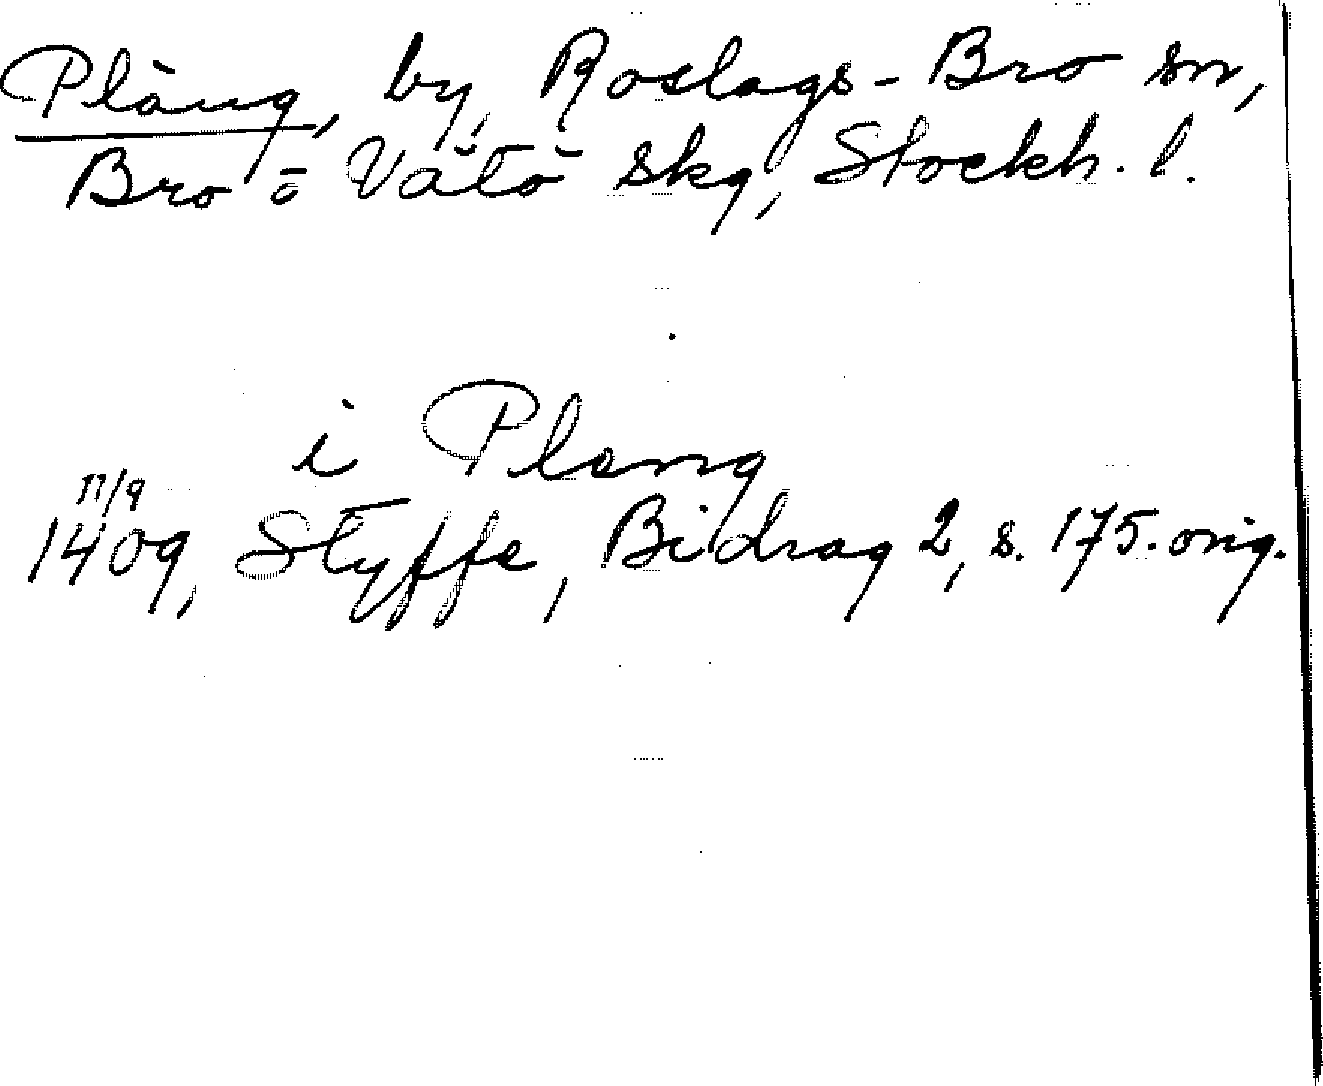 Plång, by, Roslags-Bro sn,
Bro o Vätö skg, Stockh. l.
i Plang
11/9
1409, Styffe, Bidrag 2, s. 175. orig.